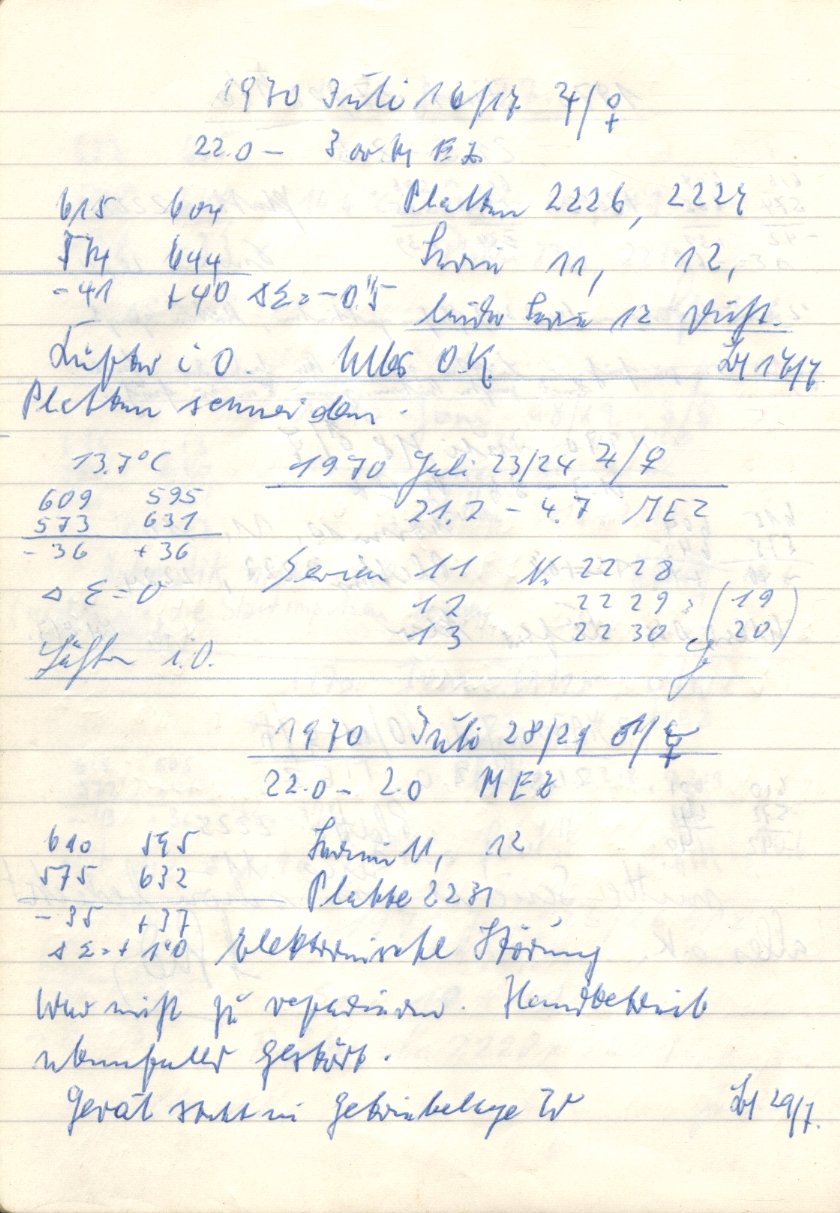 1970 Juli 16/17 ♃/♀
22.0 – 3.00 h MEZ
615 604 Platten 2226, 2227
574 644 Serie 11, 12,
-41 +40 ΔΣ=-0.5 leider Serie 12 Dicht.
Lüfter i O. Alles O.K. 17/7
Platten schneiden.
13.7°C 1970 Juli 23/24 ♃/♀
609 595 21.2 – 4.7 MEZ
573 631
-36 +36 Serien 11 N. 2228
Δ Σ = 0 12 2229, (19
13 2230 20)
Lüfter i.O.
1970 Juli 28/29 ♂/☿
22.0 – 2.0 MEZ
610 595 Serien 11, 12
575 632 Platte 2231
-35 +37
ΔΣ=+1.0 Elektronische Störung
war nicht zu reparieren. Handbetrieb
ebenfalls gestört.
Gerät steht in Getriebelage W 29/7.